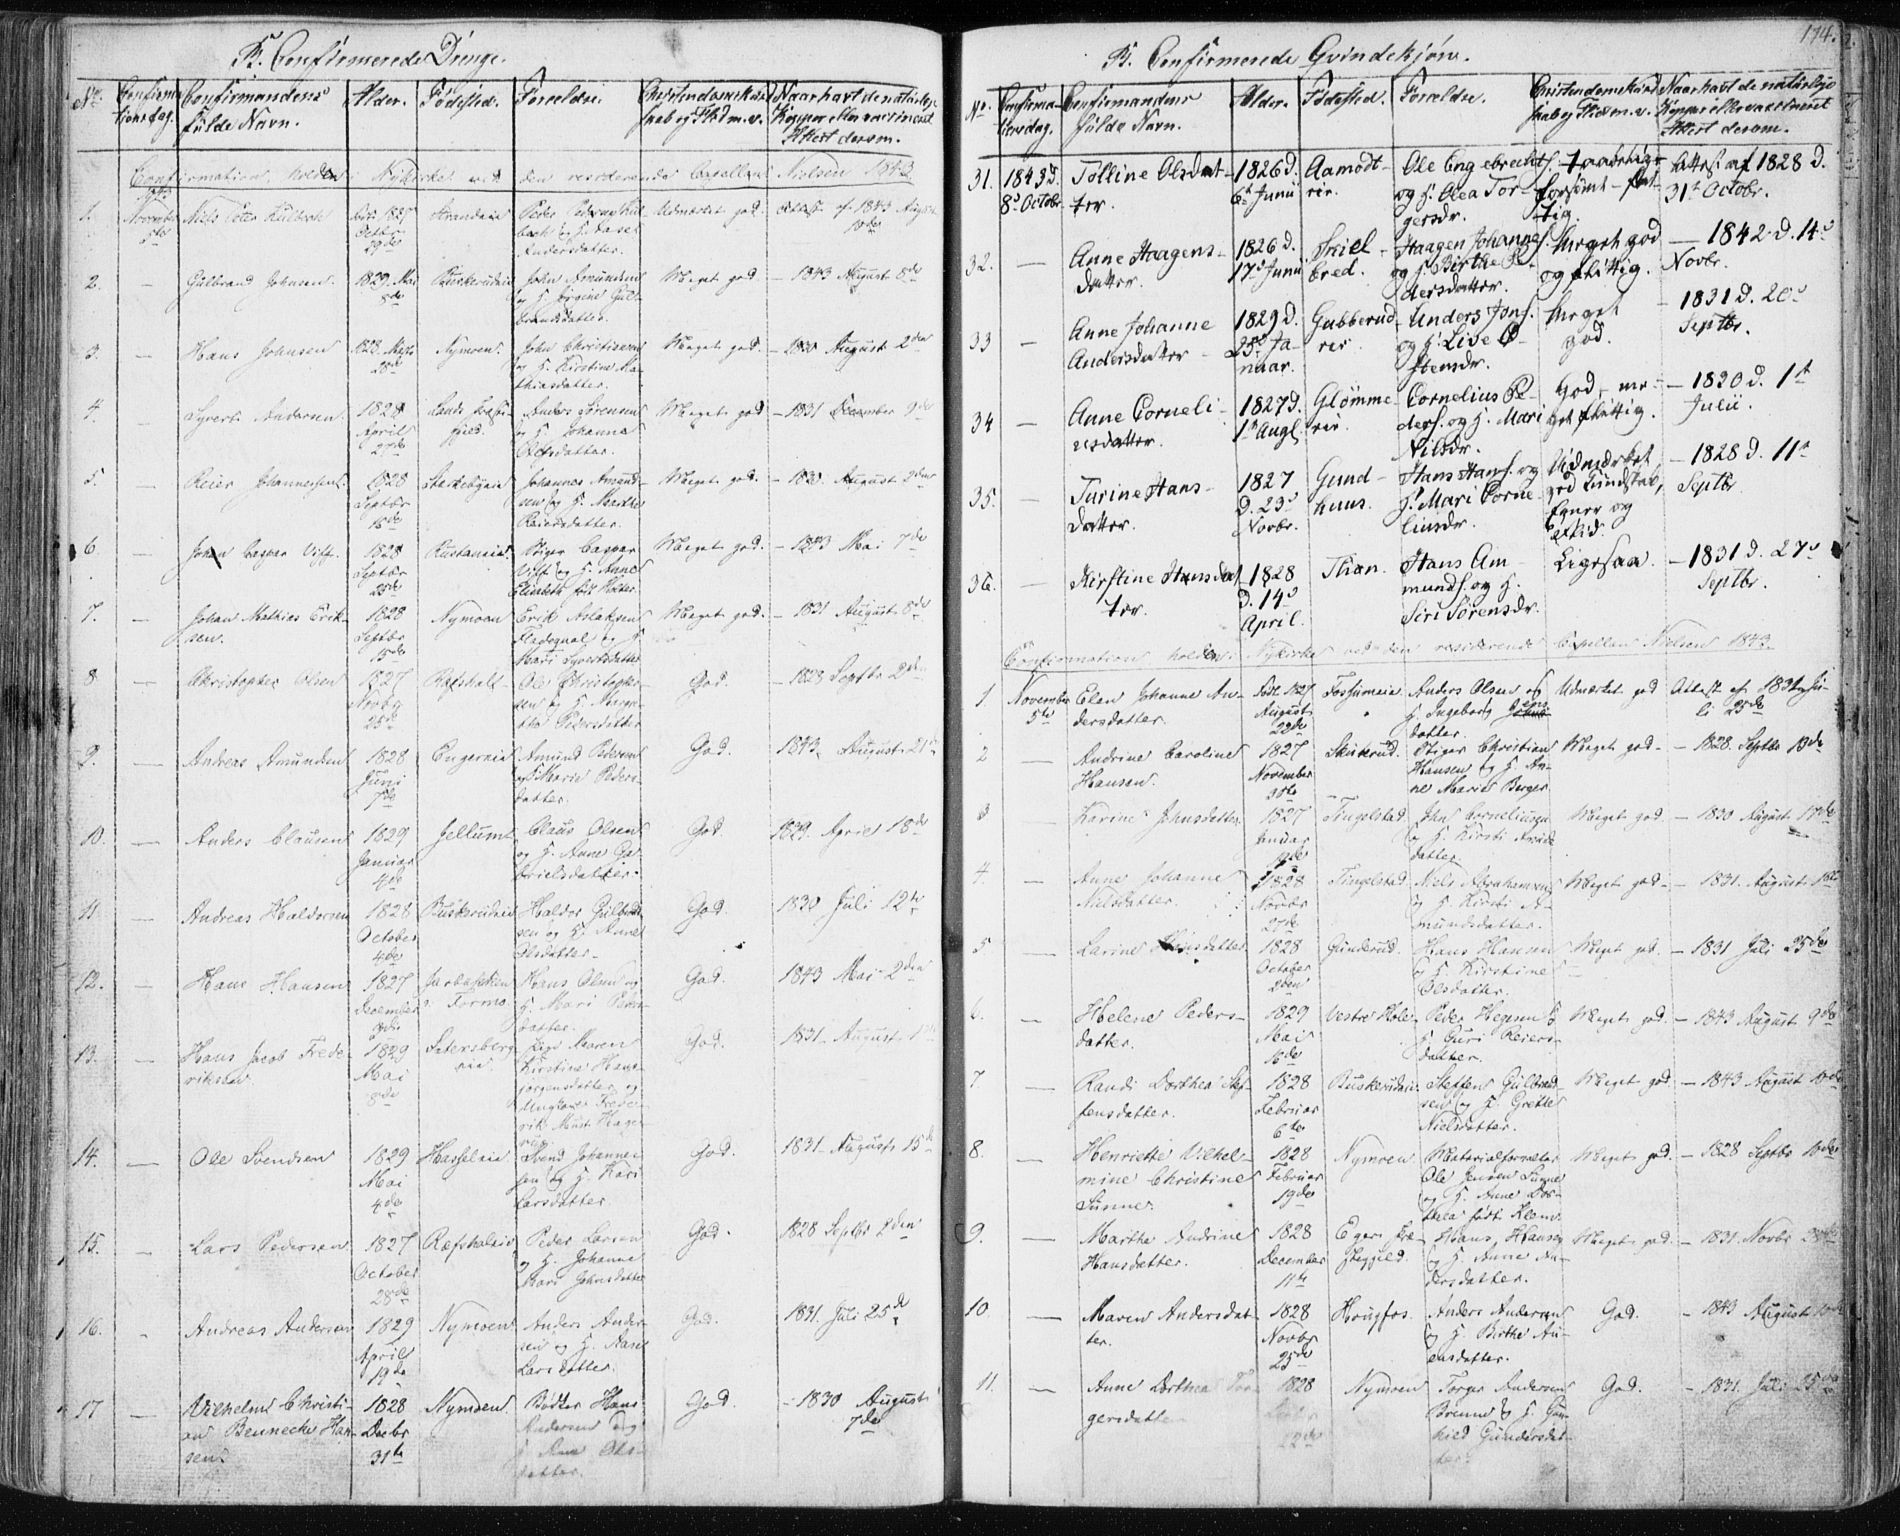 B. Confirmerede Drenge.
No.
Confirma-
tionsdag.
Confirmandens
fulde Navn.
Alder.
Fødested.
Forældre.
Christendomskund-
skab og Flid m. v.
Naar havt de naturlige
Kopper eller vaccineret
Attest derom.
Confirmation holden i Nykirke ved den residerende Capellan Nielsen 1843
1.
November
5te
Niels Peter
1827
Octbr
29de
Udmærket god
Attest af 1843 August
10de
2. — Gulbrand Johnsen. 1829 Mai
8de
Buskerudeie
John Amundsen
og H. Jørgine Gul-
brandsdatter.
Meget god. — 1843 August 8de
3. — Hans Johnsen 1828
28de
Nymoen. John Christiansen
og H. Kirstine Ma-
thiasdatter.
Meget god. — 1830 August 2den
4. — Syvert Andersen 1828
April
27de
Anders Sørensen
og H. Johanne
Olsdatter.
Meget god — 1831 December 9de
5. — Reier Johannessen. 1828
Septbr
16de
Johannes Amund-
sen og H. Marthe
Reiersdatter.
Meget god. — 1830 August 2den
6. — Johan Caspar 1828
Septbr
Caspar
og H. Anne
Elisabeth
Meget god. — 1843 Mai 7de
7. — Johan Mathias Erik-
sen.
1828
Septbr
15de
Nymoen Erik Aslaksen
og H.
Mari Syvertsdatter
Meget god. — 1831 August 8de
8 — Christopher Olsen 1827
Novbr
25de
Ole Christopher-
sen og H. Margre-
the Pedersdatter
God. — 1828 Septbr 2den
9. — Andreas Amundsen 1828
Juni
7de
Engereie Amund Pedersen
og H. Marie Peders-
datter.
God. 1843. August 21
10. — Anders Clausen 1829
Januar
4de
Jellumt Claus Olsen
og H. Anne Ga-
brielsdatter.
God 1829. April 18de
11 — Andreas Haldorsen 1828
October
4de
Buskerudeie Haldor Gulbrand-
sen og H. Anne
Olsdatter.
God. 1830 Juli 12te
12. — Hans Hansen 1827
December
Hans Olsen og
H. Mari Peders-
datter.
God. 1843 Mai 2den
13. — Hans Jacob Frede-
riksen.
1829
Mai
8de
Maren
Kirstine Hans-
jørgensdatter og
Ungkarl Frede-
rik
God. 1831. August
14. — Ole Svendsen 1829
Mai
4de
Hasseleie Svend Johannes-
sen og H. Kari
Larsdatter
God. 1831. August 15de
15. — Lars Pedersen 1827
October
28de
Ræfshaleie Peder Larsen
og H. Johanne
Mari Johnsdatter
God. 1828 Septbr 2den
16. — Andreas Andersen 1829
April
19de
Nymoen Anders Ander-
sen og H. Anne
Larsdatter.
God. 1831. Juli 25de
17 — Vilhelm Christi-
an Bennecke Han-
sen.
1828
Decbr
31te
Nymoen. Bødker Hans
Andersen og
H. Ane Ols-
datter.
God. — 1830 August
7de
174.
B. Confirmerede Qvindekjøn.
No.
Confirma-
tionsdag.
Confirmandens
fulde Navn.
Alder.
Fødested.
Forældre.
Christendomskund-
skab og Flid m. v.
Naar havt de naturlige
Kopper eller vaccineret
Attest derom.
31. 1843 d.
8d Octobr.
Tolline Olsdat-
ter.
1826 d.
6t Junii
Aamodt-
eie.
Ole Engebrechts.
og H. Olea Tor-
gersdr.
forsømt - flit-
tig.
Attest af 1828 d.
31t Octobr.
32. — Anne Haagens-
datter.
1826 d.
17d Junii
Haagen Johannes.
og H. Birthe Pe-
dersdatter.
Meget god
og flittig.
— 1842 d. 14d
Novbr.
33 — Anne Johanne
Andersdatter
1829 d.
25d Ja-
nuar.
Gubberud-
eie.
Anders Jons.
og H. Live
stensdr.
Meget
god.
— 1831 d. 20d
Septbr.
34 — Anne Corneli-
usdatter.
1827 d.
1t Aug.
Glømme-
eie.
Cornelius Pe-
ders. og H. Mari
Nilsdr.
God - me-
get flittig.
— 1830 d. 1t
Julii.
35. — Turine Hans-
datter.
1827
d. 23d
Novbr.
Gund-
huus.
Hans Hans. og
H. Mari Corne-
liusdr.
Udmærket
god Kundskab,
Evner og
Flid.
— 1828 d. 11t
Septbr
36. — Kirstine Hansdat-
ter.
1828
d. 14d
April.
Thon. Hans Am-
munds. og H.
Siri Sørensdr.
Ligesaa. — 1831 d. 27d
Septbr.
Confirmation holden i Nykirke ved den residerende Capellan Nielsen 1843.
1 November
5te
Elen Johanne An-
dersdatter.
Født 1827
August
29de
Fossumeie Anders Olsen og
H. Ingeborg Jens-
datter.
Udmærket god Attest af 1831 Ju-
li 25de
2 — Andrine Caroline
Hansen.
1827
November
30te
Skuterud. Stiger Christian
Hansen og H. An-
ne Marie Berger
Meget god — 1828. Septbr 13de
3 — Karine Johnsdatter 1827
Januar
19de
Tingelstad John Corneliusen
og H. Kirsti
datter
Meget god — 1830 August 17de
4. — Anne Johanne
Nielsdatter.
1828
Novbr
27de
Tingelstad Niels Abrahamsen
og H. Kirsti A-
mundsdatter.
Meget god — 1831. August 1ste
5 — Karine Hansdatter 1828
October
2den
Gunderud. Hans Hansen
og H. Kirstine
Olsdatter.
Meget god — 1831 Juli 25de
6. — Helene Peders-
datter.
1829
Mai
16de
Vestre Hole Peder
H. Guri Reiers-
datter.
Meget god. — 1843 August 9de
7. — Randi Dorthea Stef-
fensdatter.
1828
Februar
6te
Buskerudeie Steffen Gulbrand-
sen og H. Grethe
Nielsdatter.
Meget god — 1843 August 10de
8. — Henriette Vilhel-
mine Christine
Sunne.
1828
Februar
19de
Nymoen Materialforvalter
Ole Jensen Sunne
og H. Anne Dor-
thea født Klem
Meget god. — 1828 Septbr 10de
9. — Marthe Andrine
Hansdatter.
1828
December
11te
Egers Præ-
stegjeld.
Hans Hansen
og H. Anne An-
dersdatter.
Meget god. — 1831 Novbr
10. — Maren Andersdat-
ter.
1828
Novbr
25de
Hougfos. Anders Andersen
og H. Birthe An-
densdatter.
God. — 1843 August 10de
11. — Anne Dorthea Tor-
gersdatter
1828
22de
Nymoen Torger Andersen
Brenne og H. Gun-
hild Gundersdat-
ter.
God. — 1831. Juli 25de